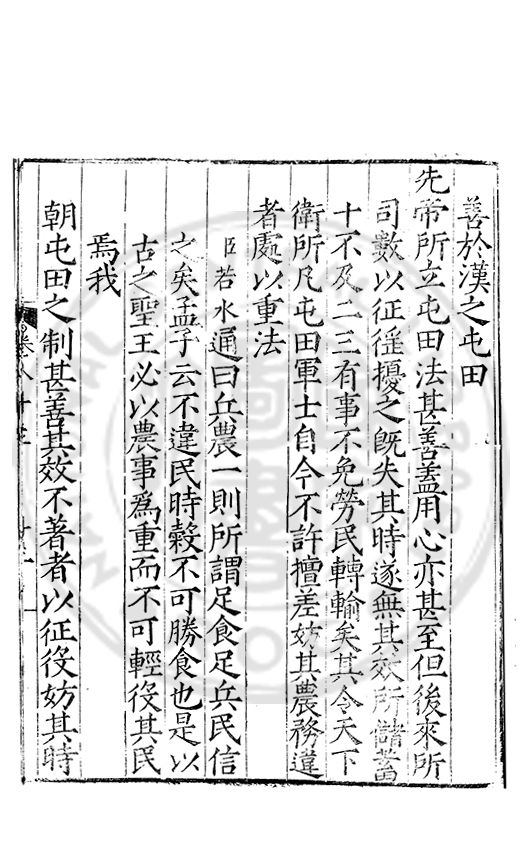 善於漢之屯田
先帝所立屯田法甚善蓋用心亦甚至但後來所
司數以征徭擾之既失其時遂無其效所儲蓄
十不及二三有事不免勞民轉輸矣其令天下
衛所凡屯田軍士自今不許擅差妨其農務違
者處以重法
臣若水通曰兵農一則所謂足食足兵民信
之矣孟子云不違民時穀不可勝食也是以
古之聖王必以農事爲重而不可輕役其民
焉我
朝屯田之制甚善其效不著者以征役妨其時
卷八十三